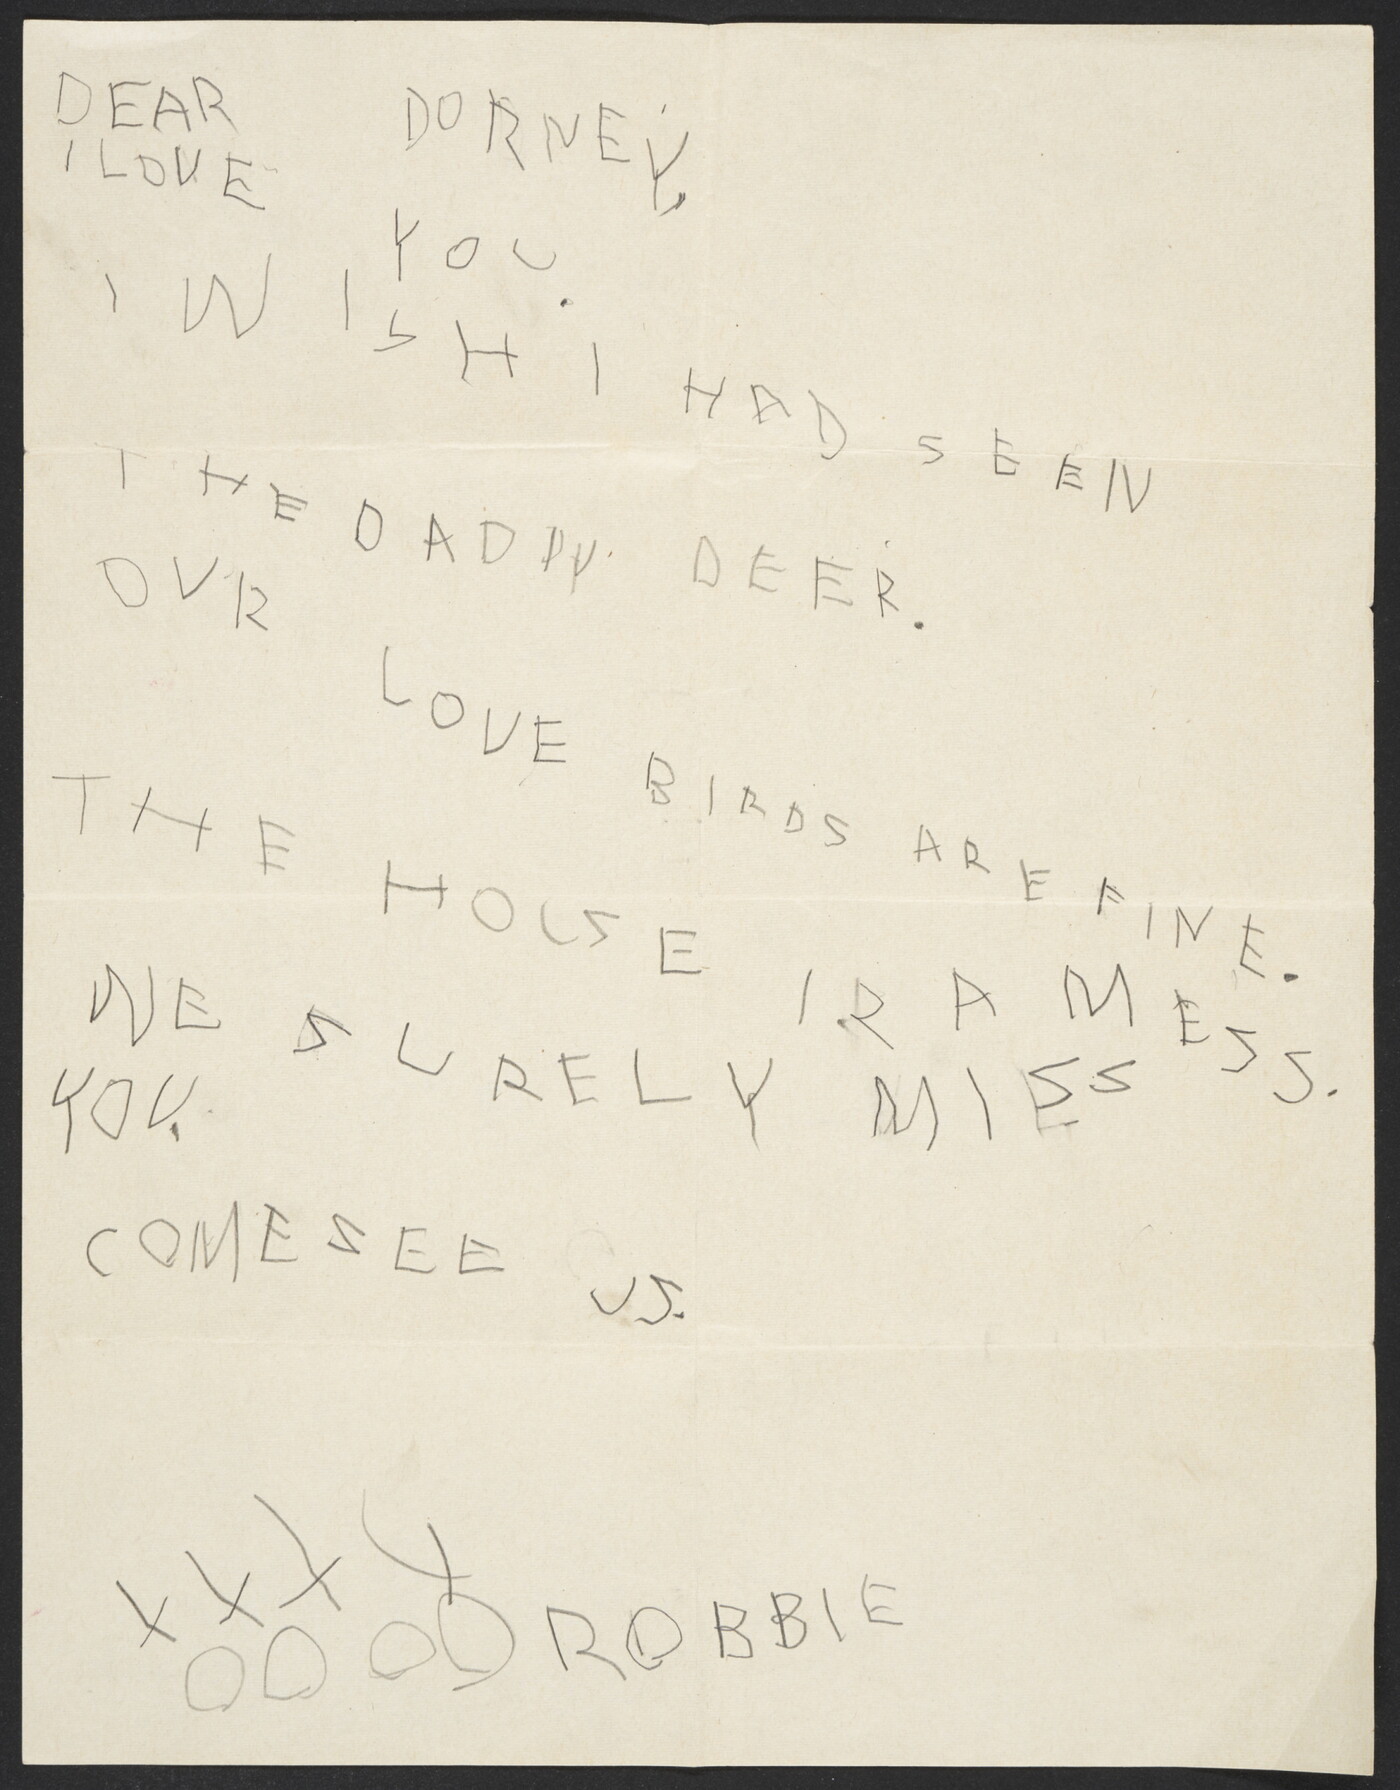 DEAR DORNEY.
I LOVE YOU.
I WISH I HAD SEEN
THE DADDY DEER.
OUR LOVE BIRDS ARE FINE.
THE HOUSE IR A MESS.
WE SURELY MISS
YOU.
COME SEE US.
XXXX
OOOO ROBBIE